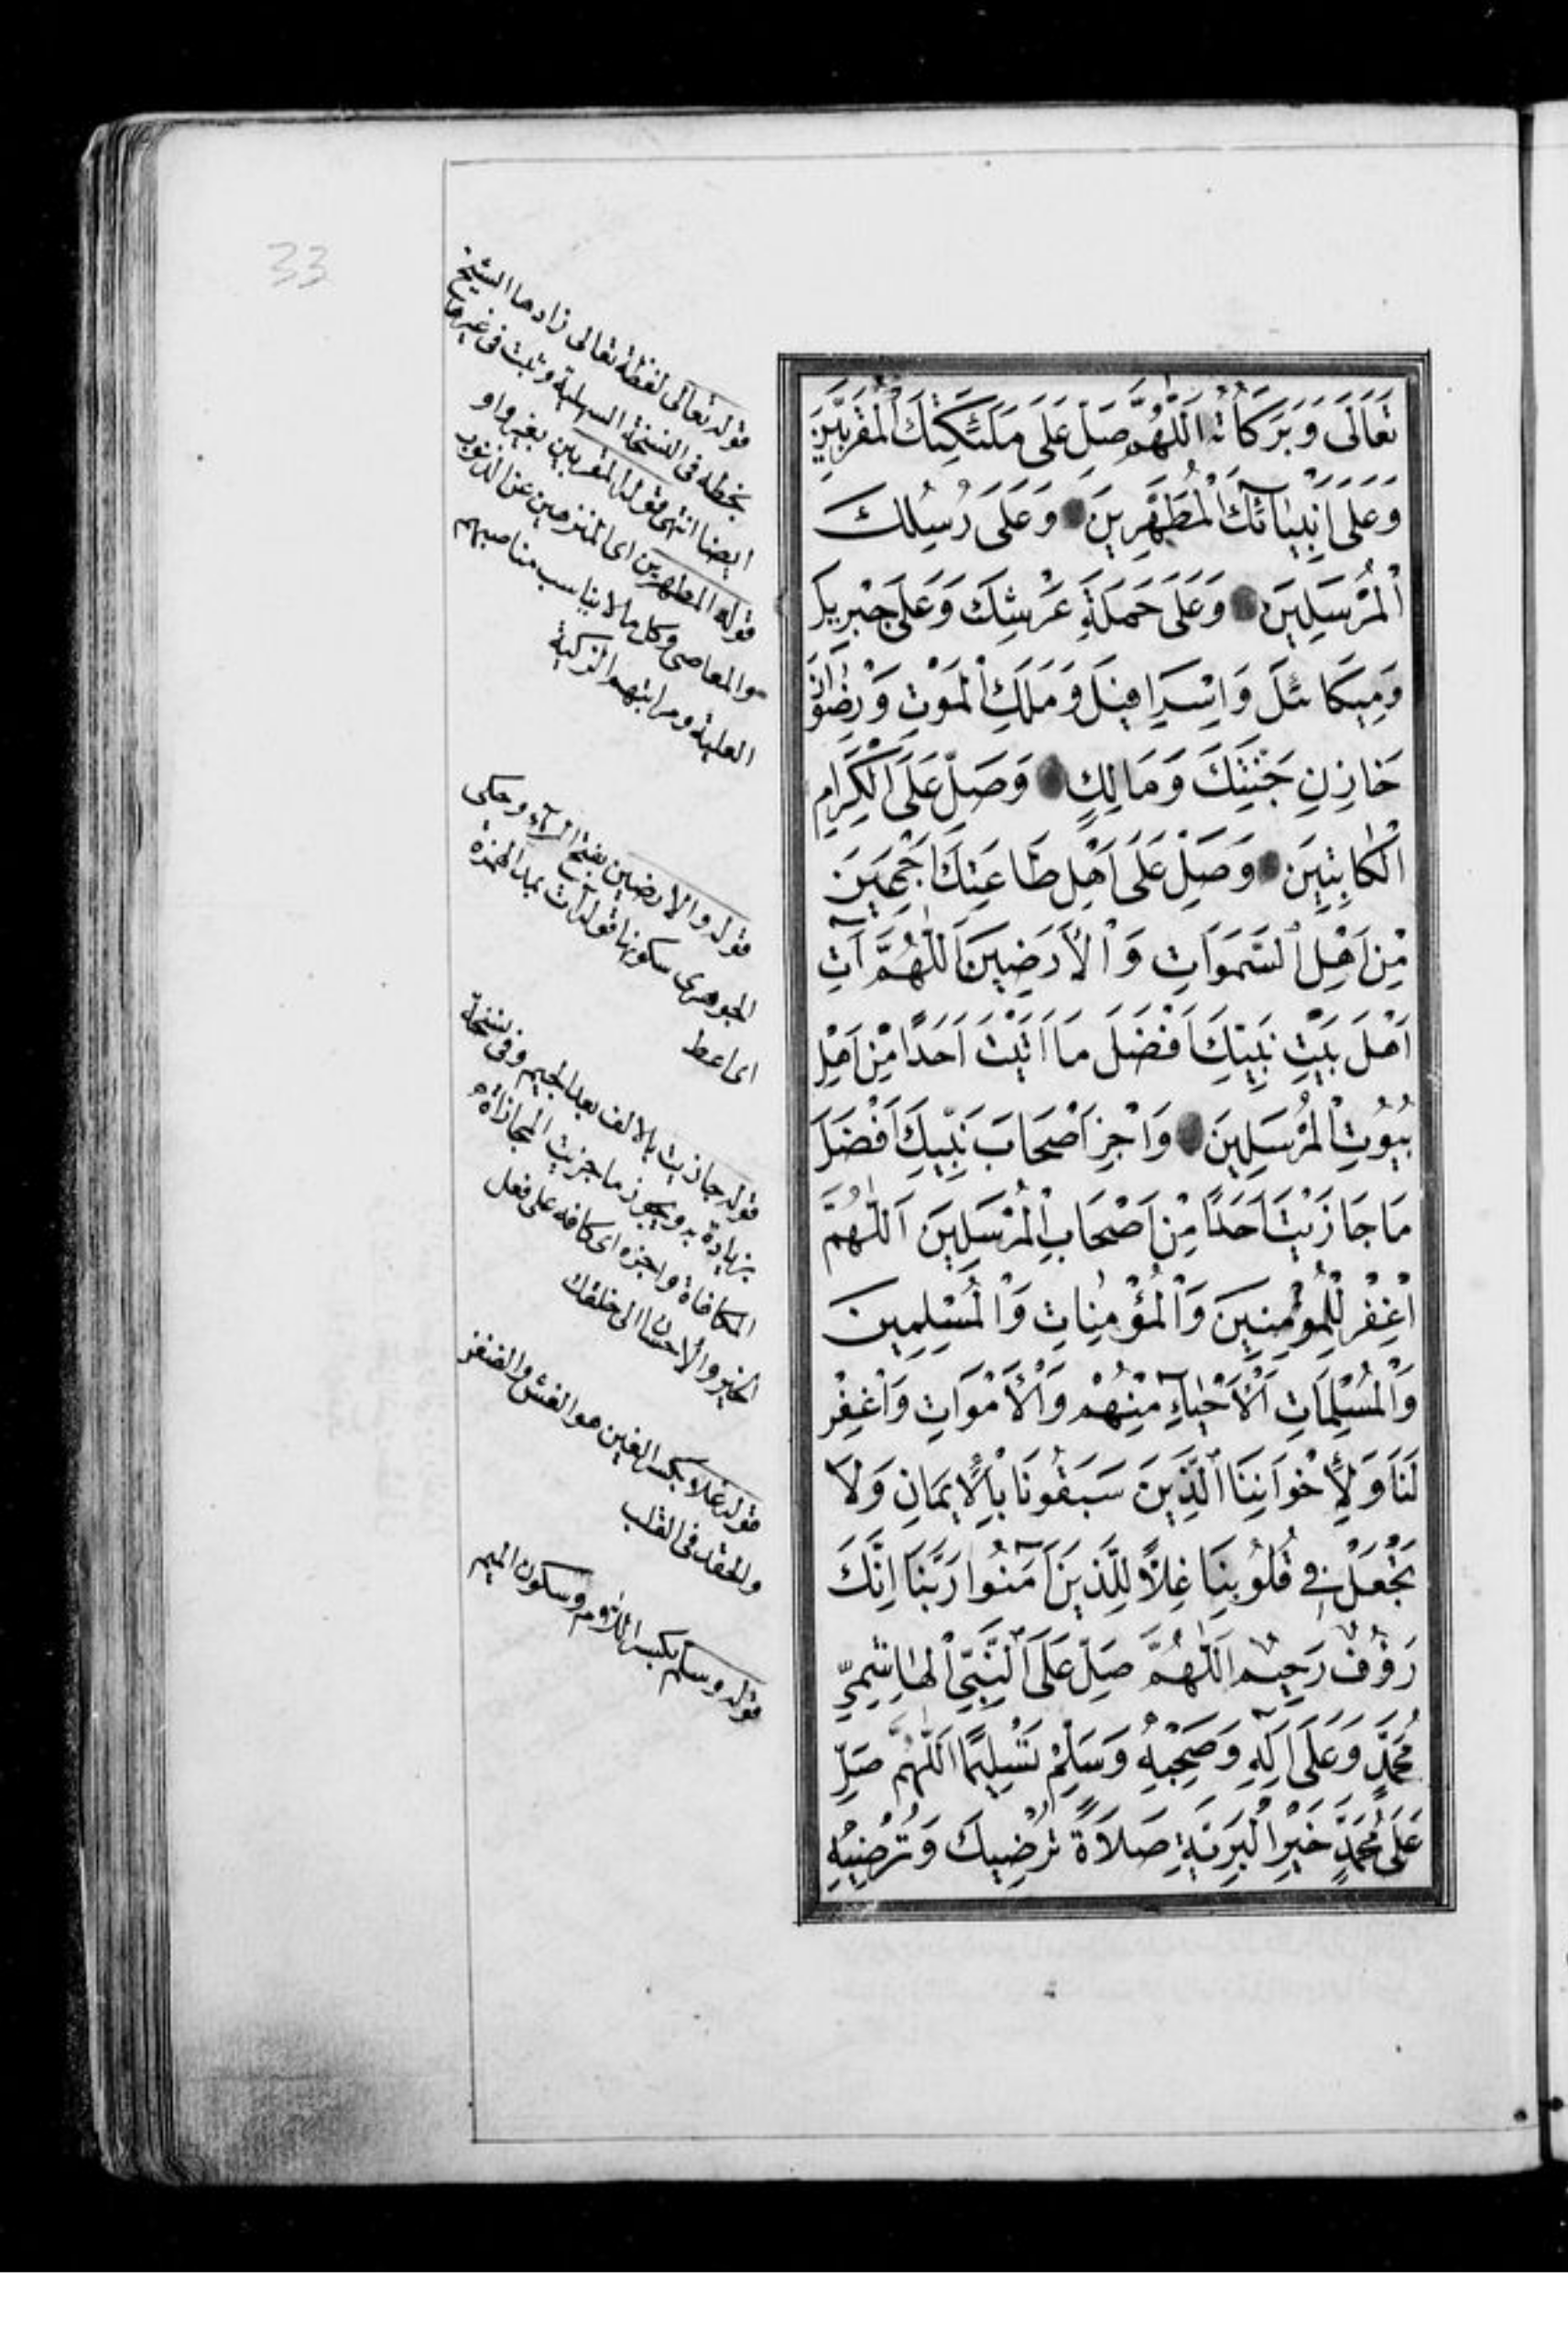 33
تَعَالَى وَبَرَكَاتُهُ اَللّٰهُمَّ صَلِّ عَلَى مَلٰئِكَتِكَ الْمُقَرَّبِينَ
وَعَلَى اَنْبِيَائِكَ الْمُطَهَّرِينَ وَعَلَى رُسُلِكَ
الْمُرْسَلِينَ وَعَلَى حَمَلَةِ عَرْشِكَ وَعَلَى جِبْرِيلَ
وَمِيكَائلَ وَاِسْرَافِيلَ وَمَلَكِ الْمَوْتِ وَرِضْوَانَ
خَازِنِ جَنَّتِكَ وَمَالِكٍ وَصَلِّ عَلَى الْكِرَامِ
الْكَاتِبِينَ وَصَلِّ عَلَى اَهْلِ طَاعَتِكَ اَجْمَعِينَ
مِنْ اَهْلِ السَّمَوَاتِ وَالْأَرَضِينَ اَللّٰهُمَّ آتِ
اَهْلَ بَيْتِ نَبِيِّكَ اَفْضَلَ مَا اَتَيْتَ اَحَدًا مِنْ اَهْلِ
بُيُوتِ الْمُرْسَلِينَ وَاجْزِ اَصْحَابَ نَبِيِّكَ اَفْضَلَ
مَا جَازَيْتَ اَحَدًا مِنْ اَصْحَابِ الْمُرْسَلِينَ اَللّٰهُمَّ
اغْفِرْ لِلْمُؤْمِنِينَ وَالْمُؤْمِنَاتِ وَالْمُسْلِمِينَ
وَالْمُسْلِمَاتِ اَلْأَحْيَاءِ مِنْهُمْ وَالْأَمْوَاتِ وَاغْفِرْ
لَنَا وَلِإِخْوَانِنَا الَّذِينَ سَبَقُونَا بِالْإِيمَانِ وَلَا
تَجْعَلْ فِي قُلُوبِنَا غِلًّا لِلَّذِينَ آمَنُوا رَبَّنَا اِنَّكَ
رَؤُفٌ رَحِيمٌ اَللّٰهُمَّ صَلِّ عَلَى النَّبِيِّ الْهَاشِمِيِّ
مُحَمَّدٍ وَعَلَى آلِهِ وَصَحْبِهِ وَسَلِّمْ تَسْلِيمًا اَللّٰهُمَّ صَلِّ
عَلَى مُحَمَّدٍ خَيْرِ الْبَرِيَّةِ صَلَاةً تُرْضِيكَ وَتُرْضِيهِ
قوله تعالى لفظة تعالى زادها الشيخ
بخطه فى النسخة السهلية وثبت فى غيرها
ايضا انتهى قوله المقربين بغير واو
قوله المطهرين اى المنزهين عن الذنوب
والمعاصى وكل ما لا يناسب مناصبهم
العلية ومراتبهم الزكية
قوله والارضين بفتح الراء وحكى
الجوهرى سكونها قوله آت بمد الهمزة
اى اعط
قوله جازيت بالالف بعد الجيم وفى نسخة
بزيادة به ويجوز ما جزيت المجازاة
المكافاة واجزه اى كافه على فعل
الخير والاحسان الى خلقك
قوله غلا بكسر الغين هو الغش والضغن
والحقد فى القلب
قوله وسلم بكسر اللام وسكون الميم